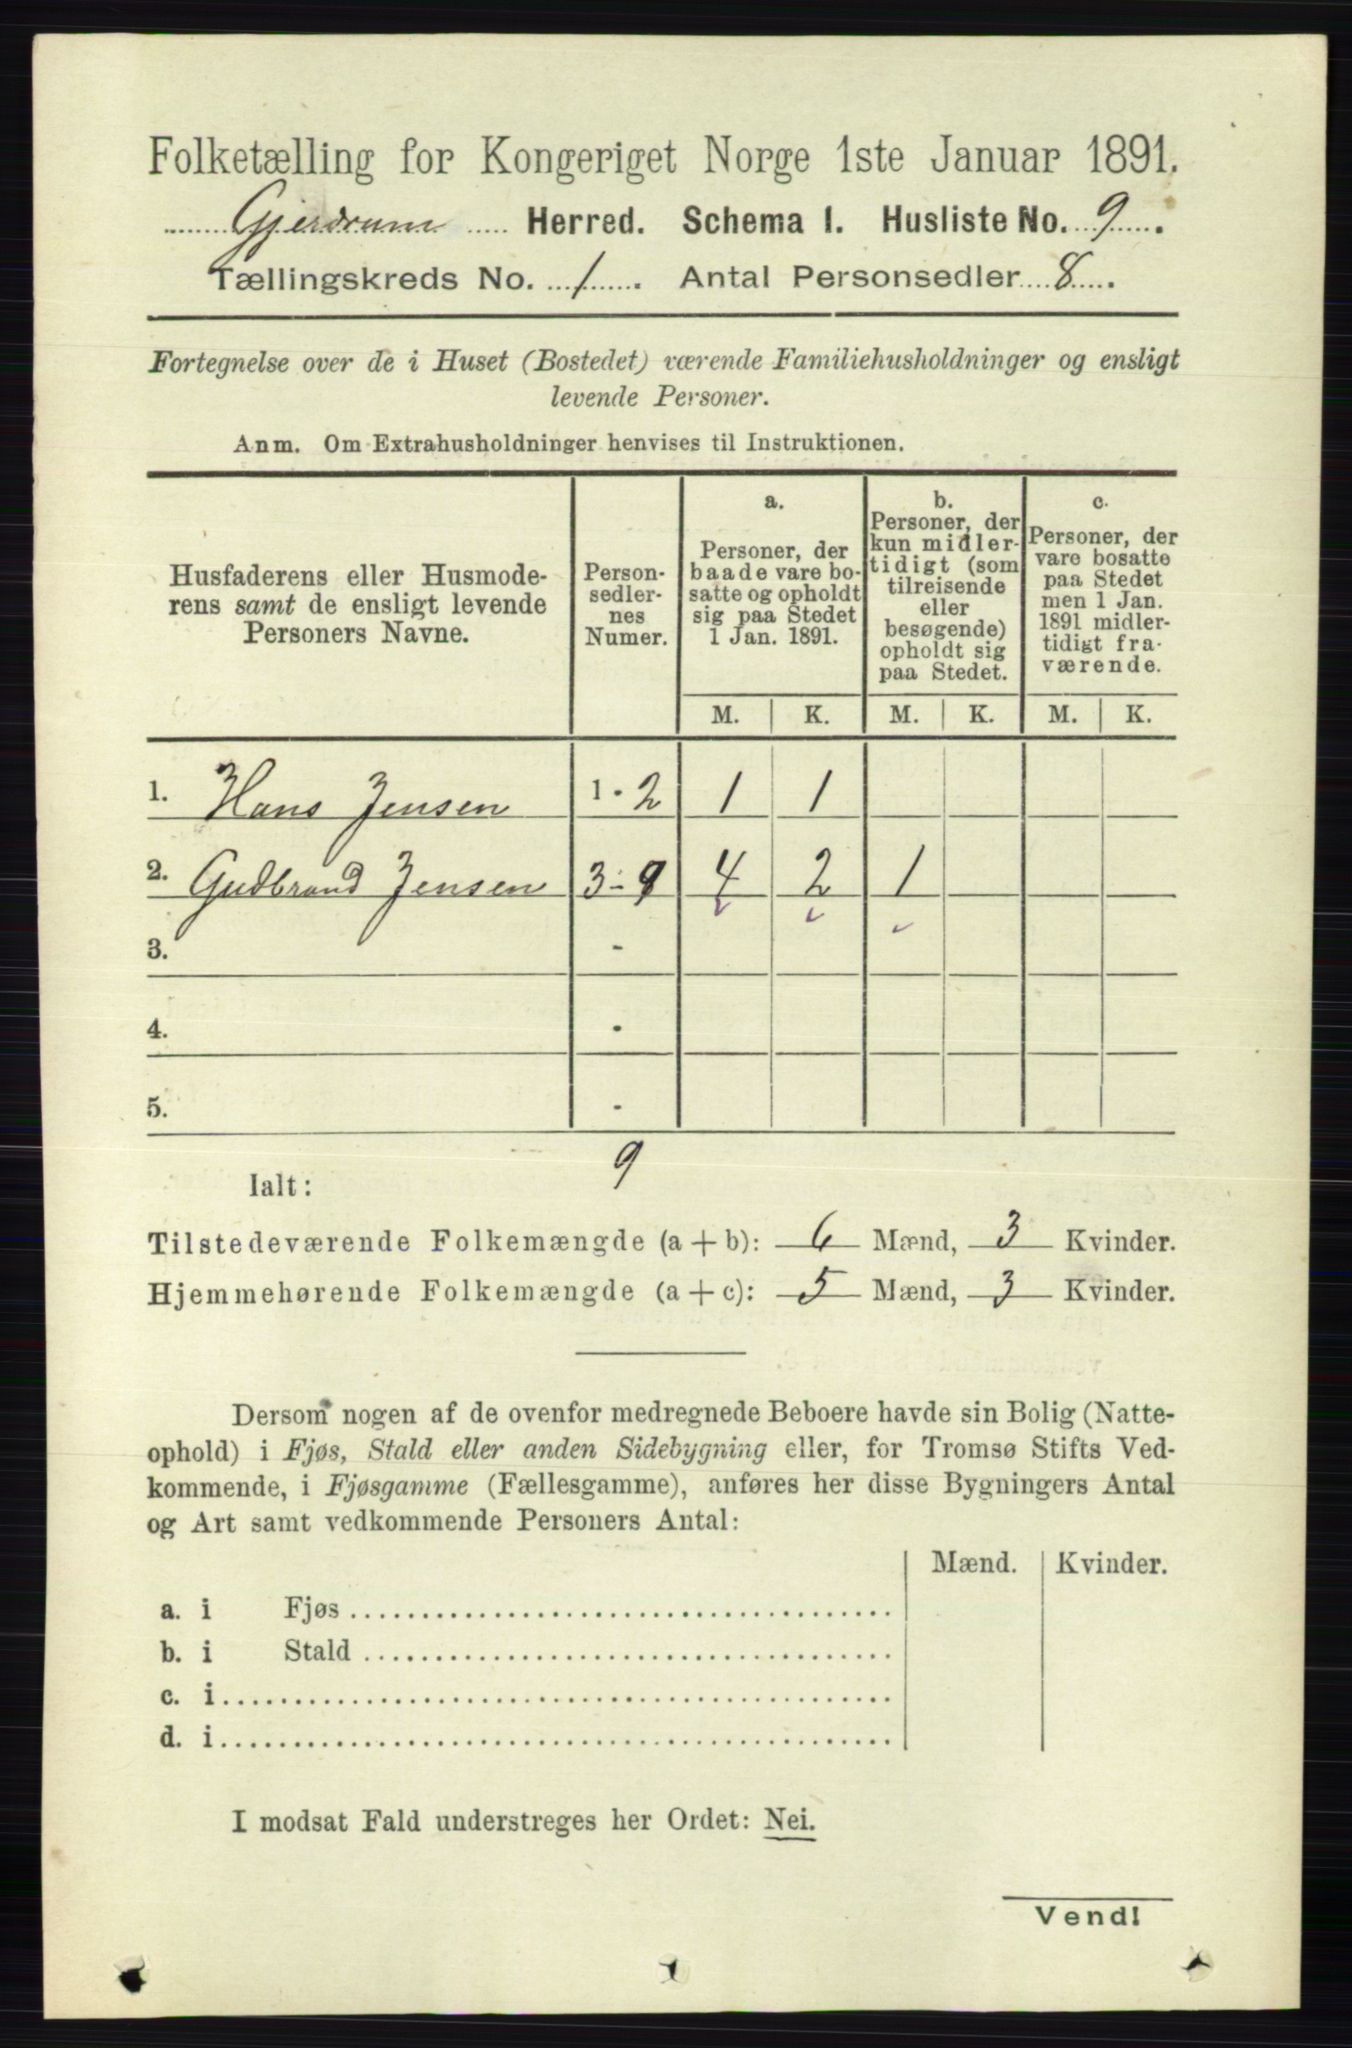 Folketælling for Kongeriget Norge 1ste Januar 1891.
Gjerdrum Herred. Schema I. Husliste No. 9.
Tællingskreds No. 1. Antal Personsedler 8.
Fortegnelse over de i Huset (Bostedet) værende Familiehusholdninger og ensligt
levende Personer.
Anm. Om Extrahusholdninger henvises til Instruktionen.
Husfaderens eller Husmode-
rens samt de ensligt levende
Personers Navne.
Person-
sedler-
nes
Numer.
a.
Personer, der
baade vare bo-
satte og opholdt
sig paa Stedet
1 Jan. 1891.
b.
Personer, der
kun midler-
tidigt (som
tilreisende
eller
besøgende)
opholdt sig
paa Stedet.
c.
Personer, der
vare bosatte
paa Stedet
men 1 Jan.
1891 midler-
tidigt fra-
værende.
M. K. M. K. M. K.
1. Hans Jensen 1 - 2 1 1
2. Gudbrand Jensen 3 - 9 4 2 1
3. -
4. -
5. -
Ialt: 9
Tilstedeværende Folkemængde (a + b): 6 Mænd, 3 Kvinder.
Hjemmehørende Folkemængde (a + c): 5 Mænd, 3 Kvinder.
Dersom nogen af de ovenfor medregnede Beboere havde sin Bolig (Natte-
ophold) i Fjøs, Stald eller anden Sidebygning eller, for Tromsø Stifts Ved-
kommende, i Fjøsgamme (Fællesgamme), anføres her disse Bygningers Antal
og Art samt vedkommende Personers Antal:
Mænd. Kvinder.
a. i Fjøs
b. i Stald
c. i
d. i
I modsat Fald understreges her Ordet: Nei.
Vend!